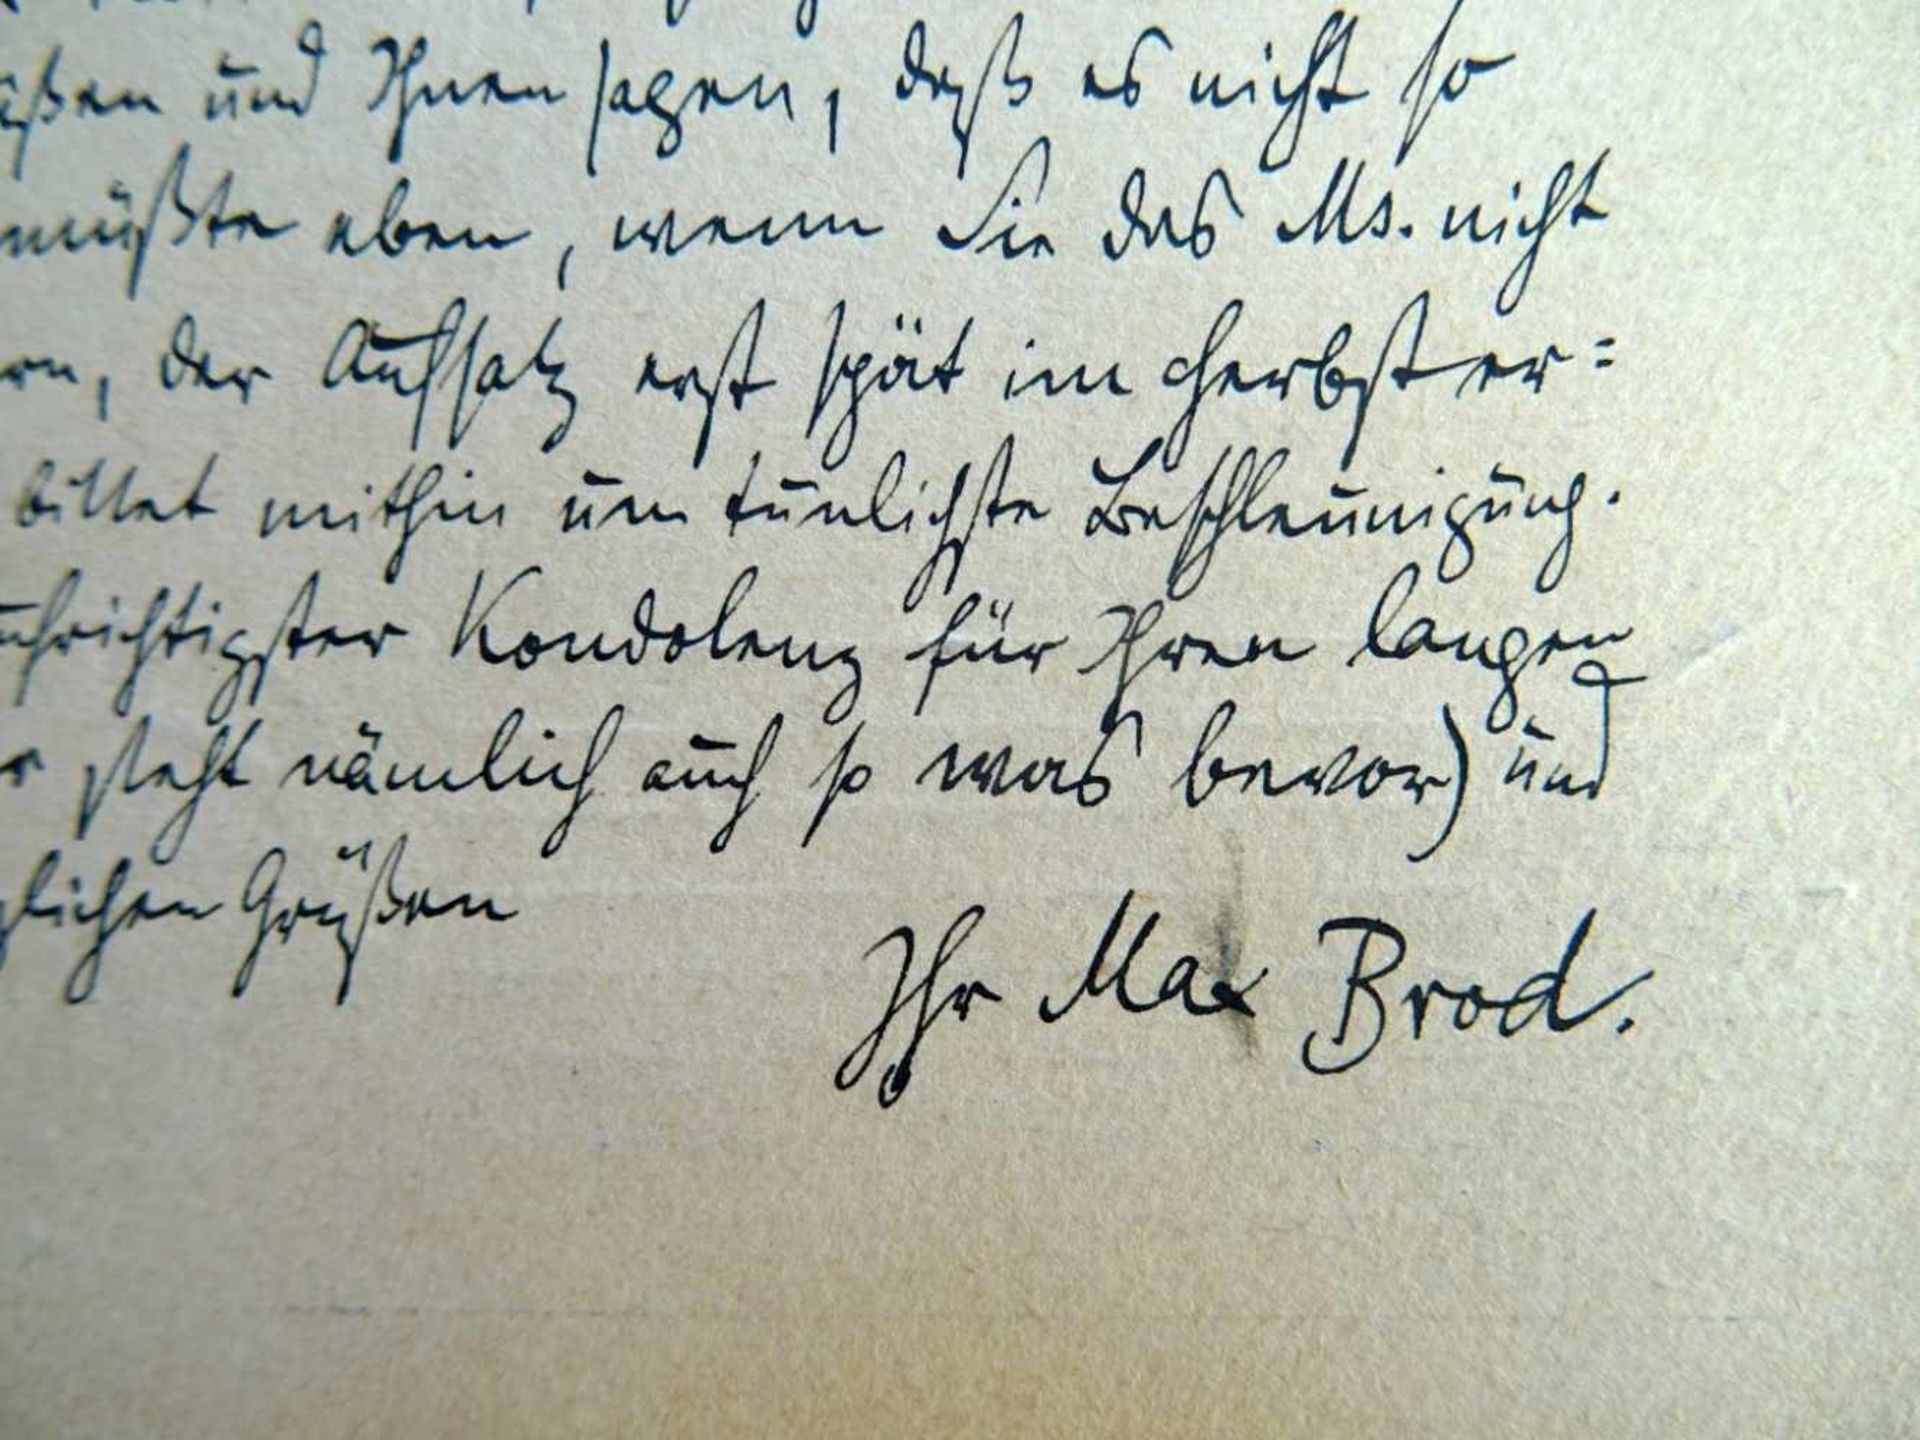 üßen und Ihnen sagen, daß es nicht so
müßte eben, wenn Sie das Ms. nicht
rn, der Aufsatz erst spät im Herbst er=
bittet mithin um tunlichste Beschleunigung.
ufrichtigster Kondolenz für Ihren langen
r steht nämlich auch so was bevor) und
zlichen Grüßen
Ihr Max Brod.